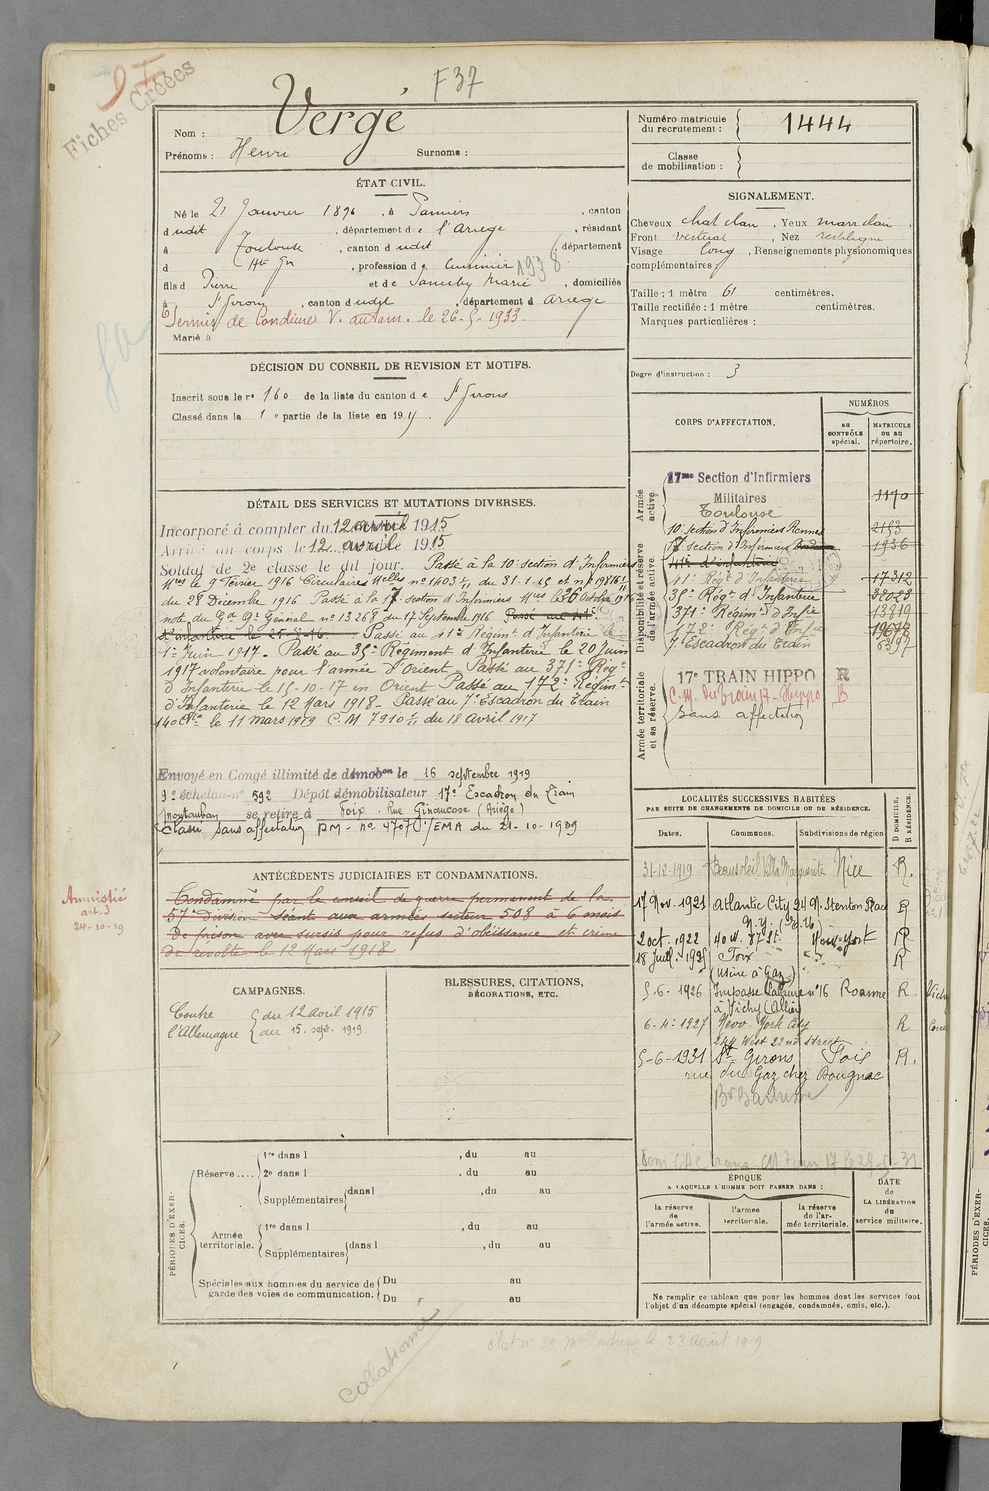 Fiches Créées
F 37
Nom : Vergé
Prénoms : Henri Surnoms :
Numéro matricule du recrutement : 1444
Classe de mobilisation :
ÉTAT CIVIL.
Né le 21 Janvier 1896, à Pamiers, canton
dudit, département de l'Ariège, résidant
à Toulouse, canton dudit, département
d Hte Gne, profession de cuisinier 1938
fils de Pierre et de Marie, domiciliés
à St Girons, canton dudit, département d Ariège
Permis de Conduire V. autom. le 26-5-1933.
Marié à
SIGNALEMENT.
Cheveux chat clair, Yeux marr clair,
Front vertical, Nez rectiligne
Visage long, Renseignements physionomiques
complémentaires
Taille : 1 mètre 61 centimètres.
Taille rectifiée : 1 mètre centimètres.
Marques particulières :
Degré d'instruction : 3
DÉCISION DU CONSEIL DE REVISION ET MOTIFS.
Inscrit sous le no 160 de la liste du canton de St Girons
Classé dans la 1e partie de la liste en 191
CORPS D'AFFECTATION.
NUMÉROS
AU CONTRÔLE spécial.
MATRICULE OU AU répertoire.
Armée active.
17me Section d'Infirmiers
Militaires 1170
Toulouse
Disponibilité et réserve de l'armée active.
10e section d'Infirmiers Rennes 2153
17 section d'Infirmiers 1936
41e d'infanterie
41e Régt d'Infanterie 17312
35e Régt d'Infanterie
371e Régimt d'Infie
172e Régt d'Infie
7e Escadron du Train
Armée territoriale et sa réserve.
17e TRAIN HIPPO R
C.M. du train 17 - Hippo B
Sans affectation
DÉTAIL DES SERVICES ET MUTATIONS DIVERSES.
Incorporé à compter du 12 avril 1915
Arrivé au corps le 12 avril 1915
Soldat de 2e classe le dit jour. Passé à la 10e section d'Infirmiers
Mres le 9 Février 1916 Circulaires Melles n° 1403 du 31-1-15 et n°
du 28 Décembre 1916 Passé à la 17e section d'Infirmiers Mres le 26 Octobre 1916
note du Gal Qr Général n° 13268 du 17 Septembre 1916 Passé au 41e
d'infanterie le Passé au 41e Régimt d'Infanterie le
1er Juin 1917. Passé au 35e Régiment d'Infanterie le 20 Juin
1917 volontaire pour l'armée d'Orient Passé au 371e Régt
d'Infanterie le 15-10-17 en Orient Passé au 172e Régimt
d'Infanterie le 12 Mars 1918 - Passé au 7e Escadron du Train
140 Cie le 11 mars 1919 C.M 7910 du 18 Avril 1917
Envoyé en Congé illimité de démobon le 16 septembre 1919
9e échelon n° 592 Dépôt démobilisateur 17e Escadron du Train
Montauban se retire à Foix. Rue (Ariège)
Classé Sans affectation DM - no 4707/EMA du 21-10-1939
ANTÉCÉDENTS JUDICIAIRES ET CONDAMNATIONS.
Amnistié
art. 3
24-10-19
Condamné par le conseil de guerre permanent de la
57e Division séant aux armées secteur 508 à 6 mois
de prison avec sursis pour refus d'obéissance et crime
de révolte le 12 Mars 1918
CAMPAGNES.
Contre du 12 avril 1915
l'Allemagne au 15 sept. 1919.
BLESSURES, CITATIONS,
DÉCORATIONS, ETC.
LOCALITÉS SUCCESSIVES HABITÉES
PAR SUITE DE CHANGEMENTS DE DOMICILE OU DE RÉSIDENCE.
Dates. Communes. Subdivisions de région. D DOMICILE. R RÉSIDENCE.
31-12-1919 Beausoleil Villa Marguerite Nice R.
17 Nov. 1921 Atlantic City 24 N. Stenton Place R
N.Y. (E.U)
2 oct. 1922 40 W. 57 St. New-York R
18 Juill. 1925 Foix R
(usine à Gaz)
5-6-1926 Impasse n° 16 Roanne R
à Vichy (Allier)
6-4-1927 New-York City R
244 West 22nd Street
5-6-1931 St Girons Foix R.
rue du Gaz chez Bougnac
PÉRIODES D'EXERCICES.
Réserve .... 1re dans l , du au
2e dans l , du au
Supplémentaires dans l , du au
Armée territoriale. 1re dans l , du au
Supplémentaires dans l , du au
Spéciales aux hommes du service de garde des voies de communication. Du au
Du au
ÉPOQUE
A LAQUELLE L'HOMME DOIT PASSER DANS :
la réserve de l'armée active.
l'armée territoriale.
la réserve de l'armée territoriale.
DATE de LA LIBÉRATION du service militaire.
Ne remplir ce tableau que pour les hommes dont les services font
l'objet d'un décompte spécial (engagés, condamnés, omis, etc.).
Collationné
23 août 1919
PÉRIODES D'EXERCICES.